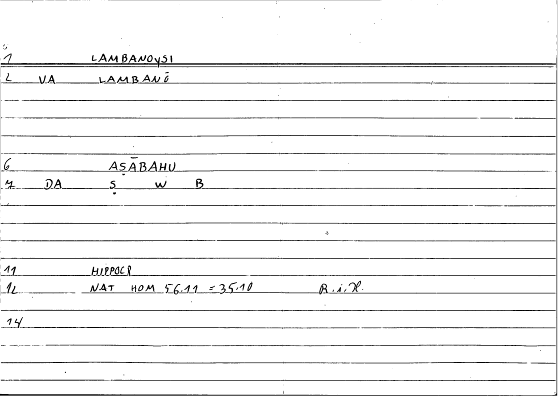 1 LAMBANOYSI
2 VA LAMBANŌ
6 AṢĀBAHU
7 DA Ṣ W B
11 HIPPOCR
12 NAT HOM 56.11 = 35.10
14